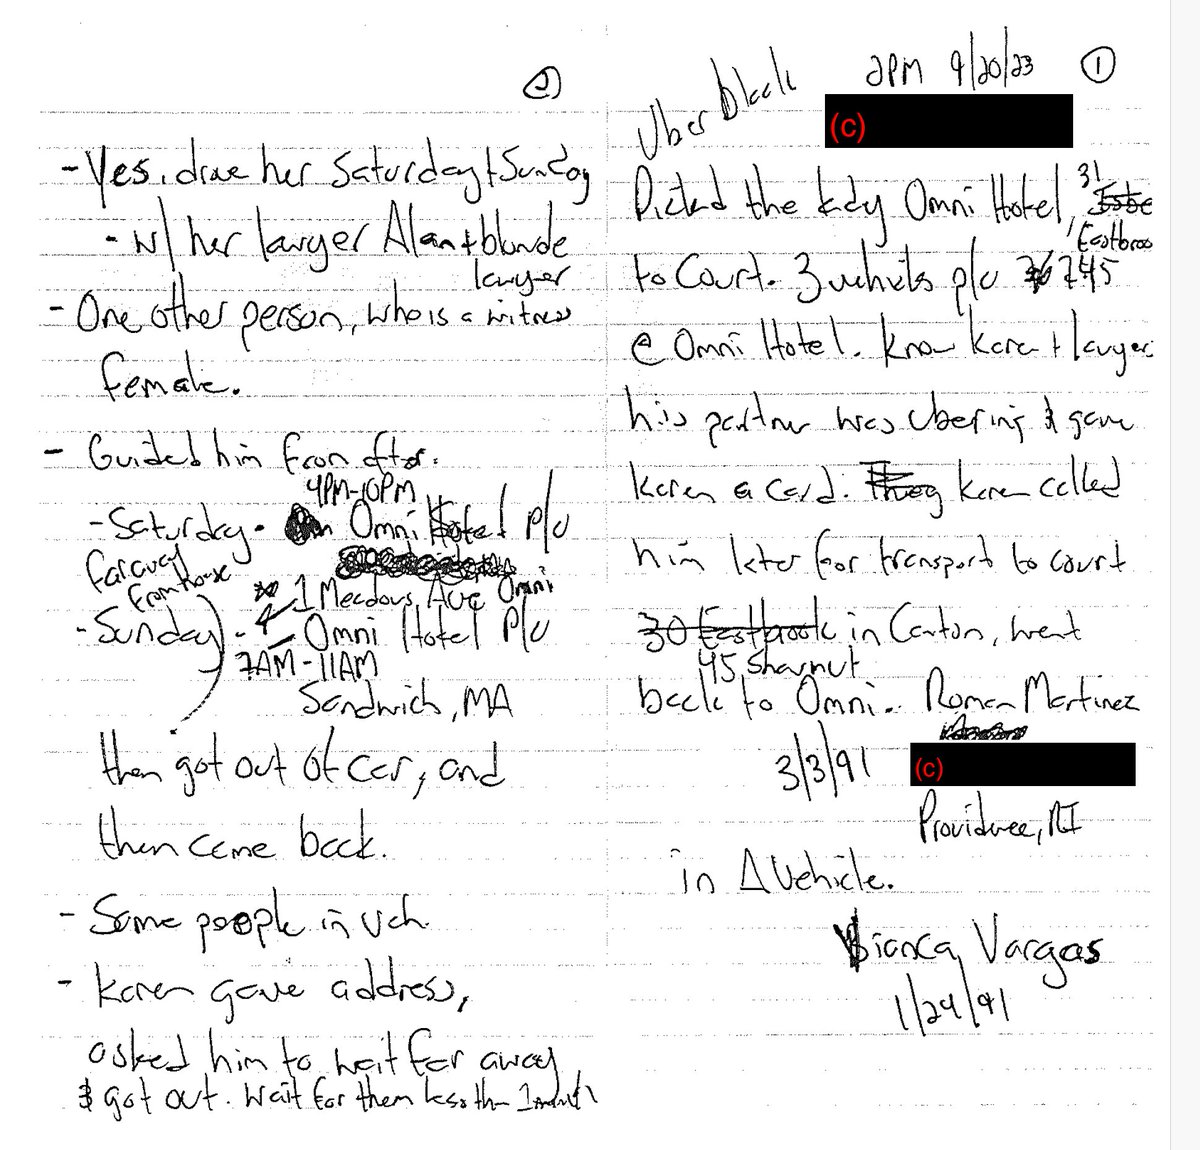 ①
Uber black 2PM 9/20/23
(c)
Picked the lady Omni Hotel, 31
Eastbroo
to Court. 3 vehicles p/u 745
@ Omni Hotel. Know Karen + lawyer.
his partner was Ubering & gave
Karen a card. Karen called
him later for transport to court
30 Eastbrook in Canton, went
45 Sharnut
back to Omni. Roman Martinez
3/3/91 (c)
Providence, RI
in A Vehicle.
Bianca Vargas
1/24/91
②
- Yes, drove her Saturday + Sunday
- w/ her lawyer Alan + blonde
lawyer
- One other person, who is a witness
female.
- Guided him from after.
4PM-10PM
- Saturday - Omni Hotel p/u
far away
from house
1 Meadows Ave Omni
- Sunday - Omni Hotel P/u
7AM - 11AM
Sandwich, MA
then got out of car, and
then came back.
- Same people in veh.
- Karen gave address,
asked him to wait far away
& got out. Wait for them less than 1